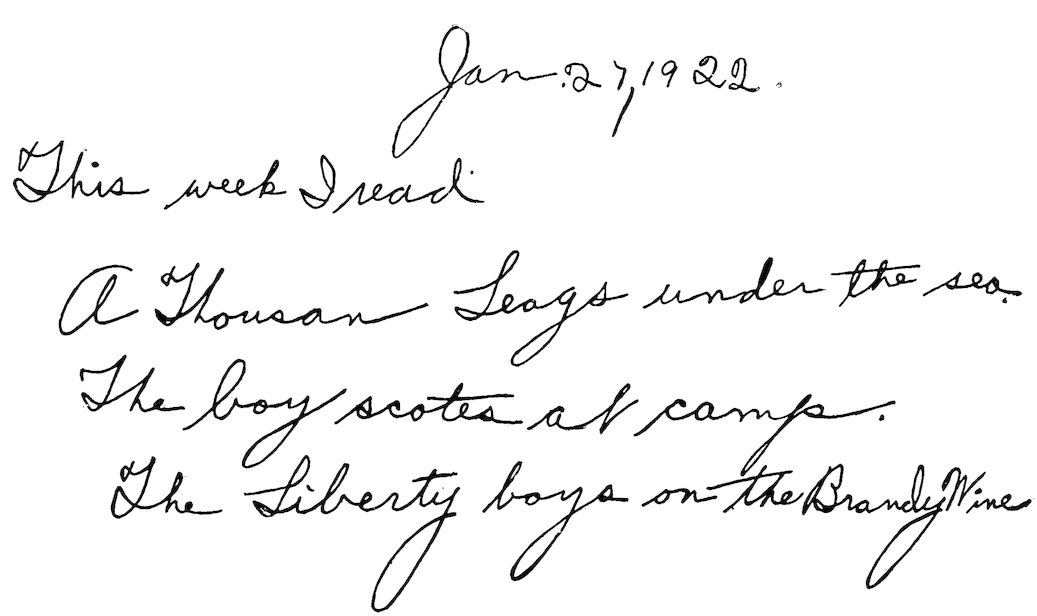 Jan. 27, 1922.
This week I read
A Thousan Leags under the sea.
The boy scotes at camp.
The Liberty boys on the Brandy Wine